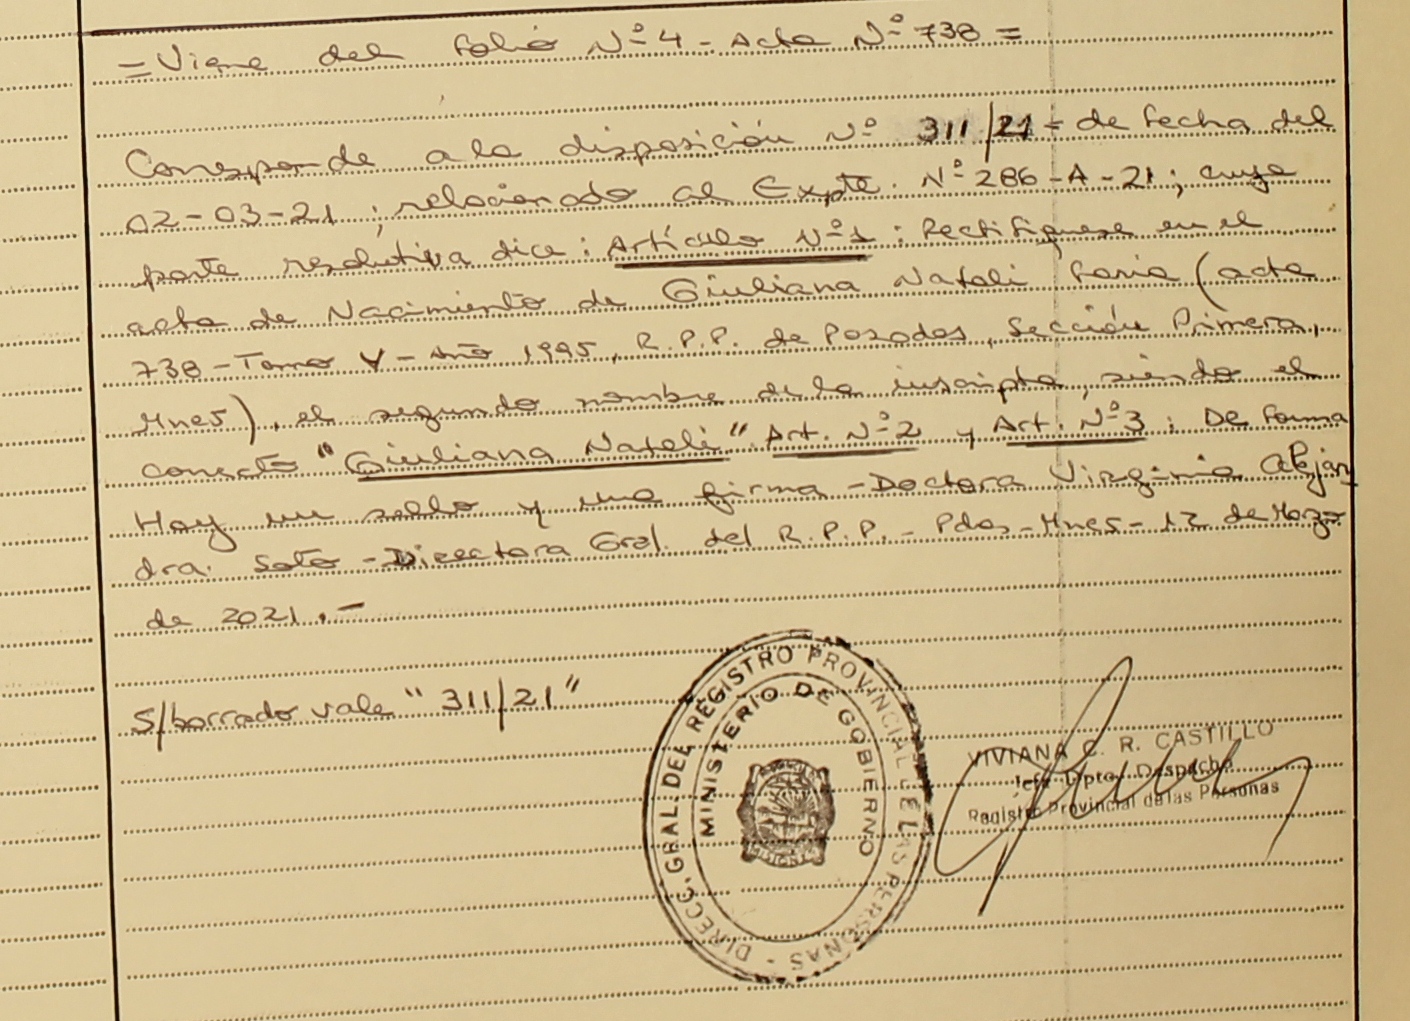 = Viene del folio Nº 4 - Acta Nº 738 =
Corresponde a la disposición Nº 311/21 - de fecha del
02-03-21; relacionado al Expte. Nº 286-A-21; cuya
parte resolutiva dice: Artículo Nº 1: Rectifíquese en el
acta de Nacimiento de Giuliana Natali Faria (acta
738 - Tomo V - Año 1995, R.P.P. de Posadas, Sección Primera,
Mnes), el segundo nombre de la inscripta, siendo el
correcto "Giuliana Nateli" Art. Nº 2 y Art. Nº 3: De forma
Hay un sello y una firma - Doctora Virginia Alejan
dra. Soto - Directora Gral. del R.P.P. - Pdas - Mnes - 12 de Marzo
de 2021.-
S/borrado vale "311/21"
DIRECC. GRAL. DEL REGISTRO PROVINCIAL DE LAS PERSONAS -
MINISTERIO DE GOBIERNO
MISIONES
VIVIANA C. R. CASTILLO
Jefe Dpto. Despacho
Registro Provincial de las Personas